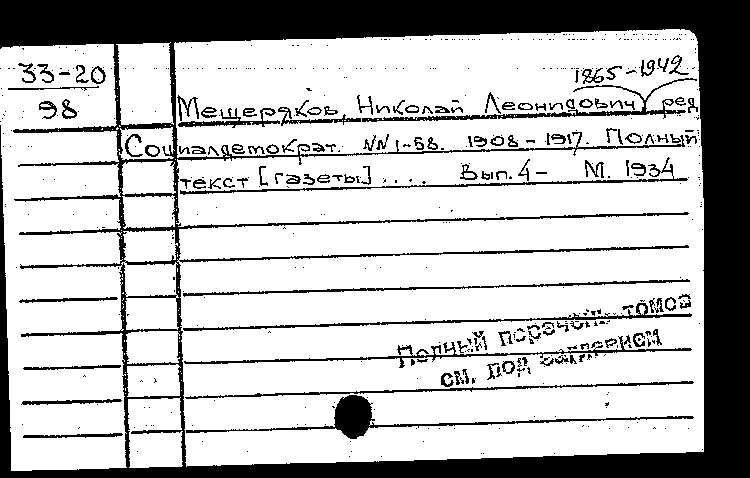 33-20
98
1865-1942
Мещеряков, Николай Леонидович, ред
Социалдемократ. NN 1-58. 1908-1917. Полный
текст [газеты].... Вып. 4- М. 1934
Полный перечень томов
см. под заглавием